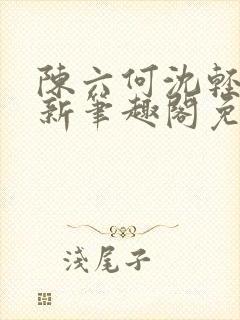 陳六何沈輕
新筆趣閣免
淺尾子